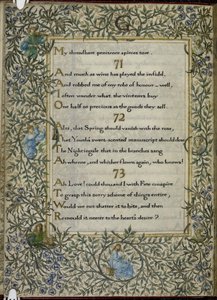 My threadbare penitence apieces tore.
71
And much as wine has played the infidel,
And robbed me of my robe of honour – well,
I often wonder what the vintners buy
One half so precious as the goods they sell.
72
Alas, that Spring should vanish with the rose,
That Youth's sweet-scented manuscript should close
The Nightingale that in the branches sang
Ah whence, and whither flown again, who knows!
73
Ah Love! could thou and I with Fate conspire
To grasp this sorry scheme of things entire
Would we not shatter it to bits, and then
Remould it nearer to the heart's desire?